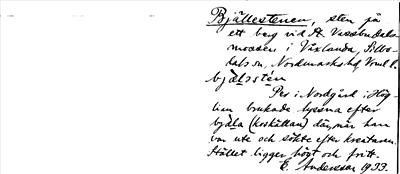 Bjällestenen, sten på
ett berg vid St. Vassbudals
mossen i Växlanda, Sillbo-
dals sn, Nordmarks hd, Vrml l.
bjäl̲stén
Per i Nordgård i Hög-
lian brukade lyssna efter
bjäl̲a (koskällan) där, när han
var ute och sökte efter kreaturen.
Stället ligger högt och fritt.
E. Andersson 1933.